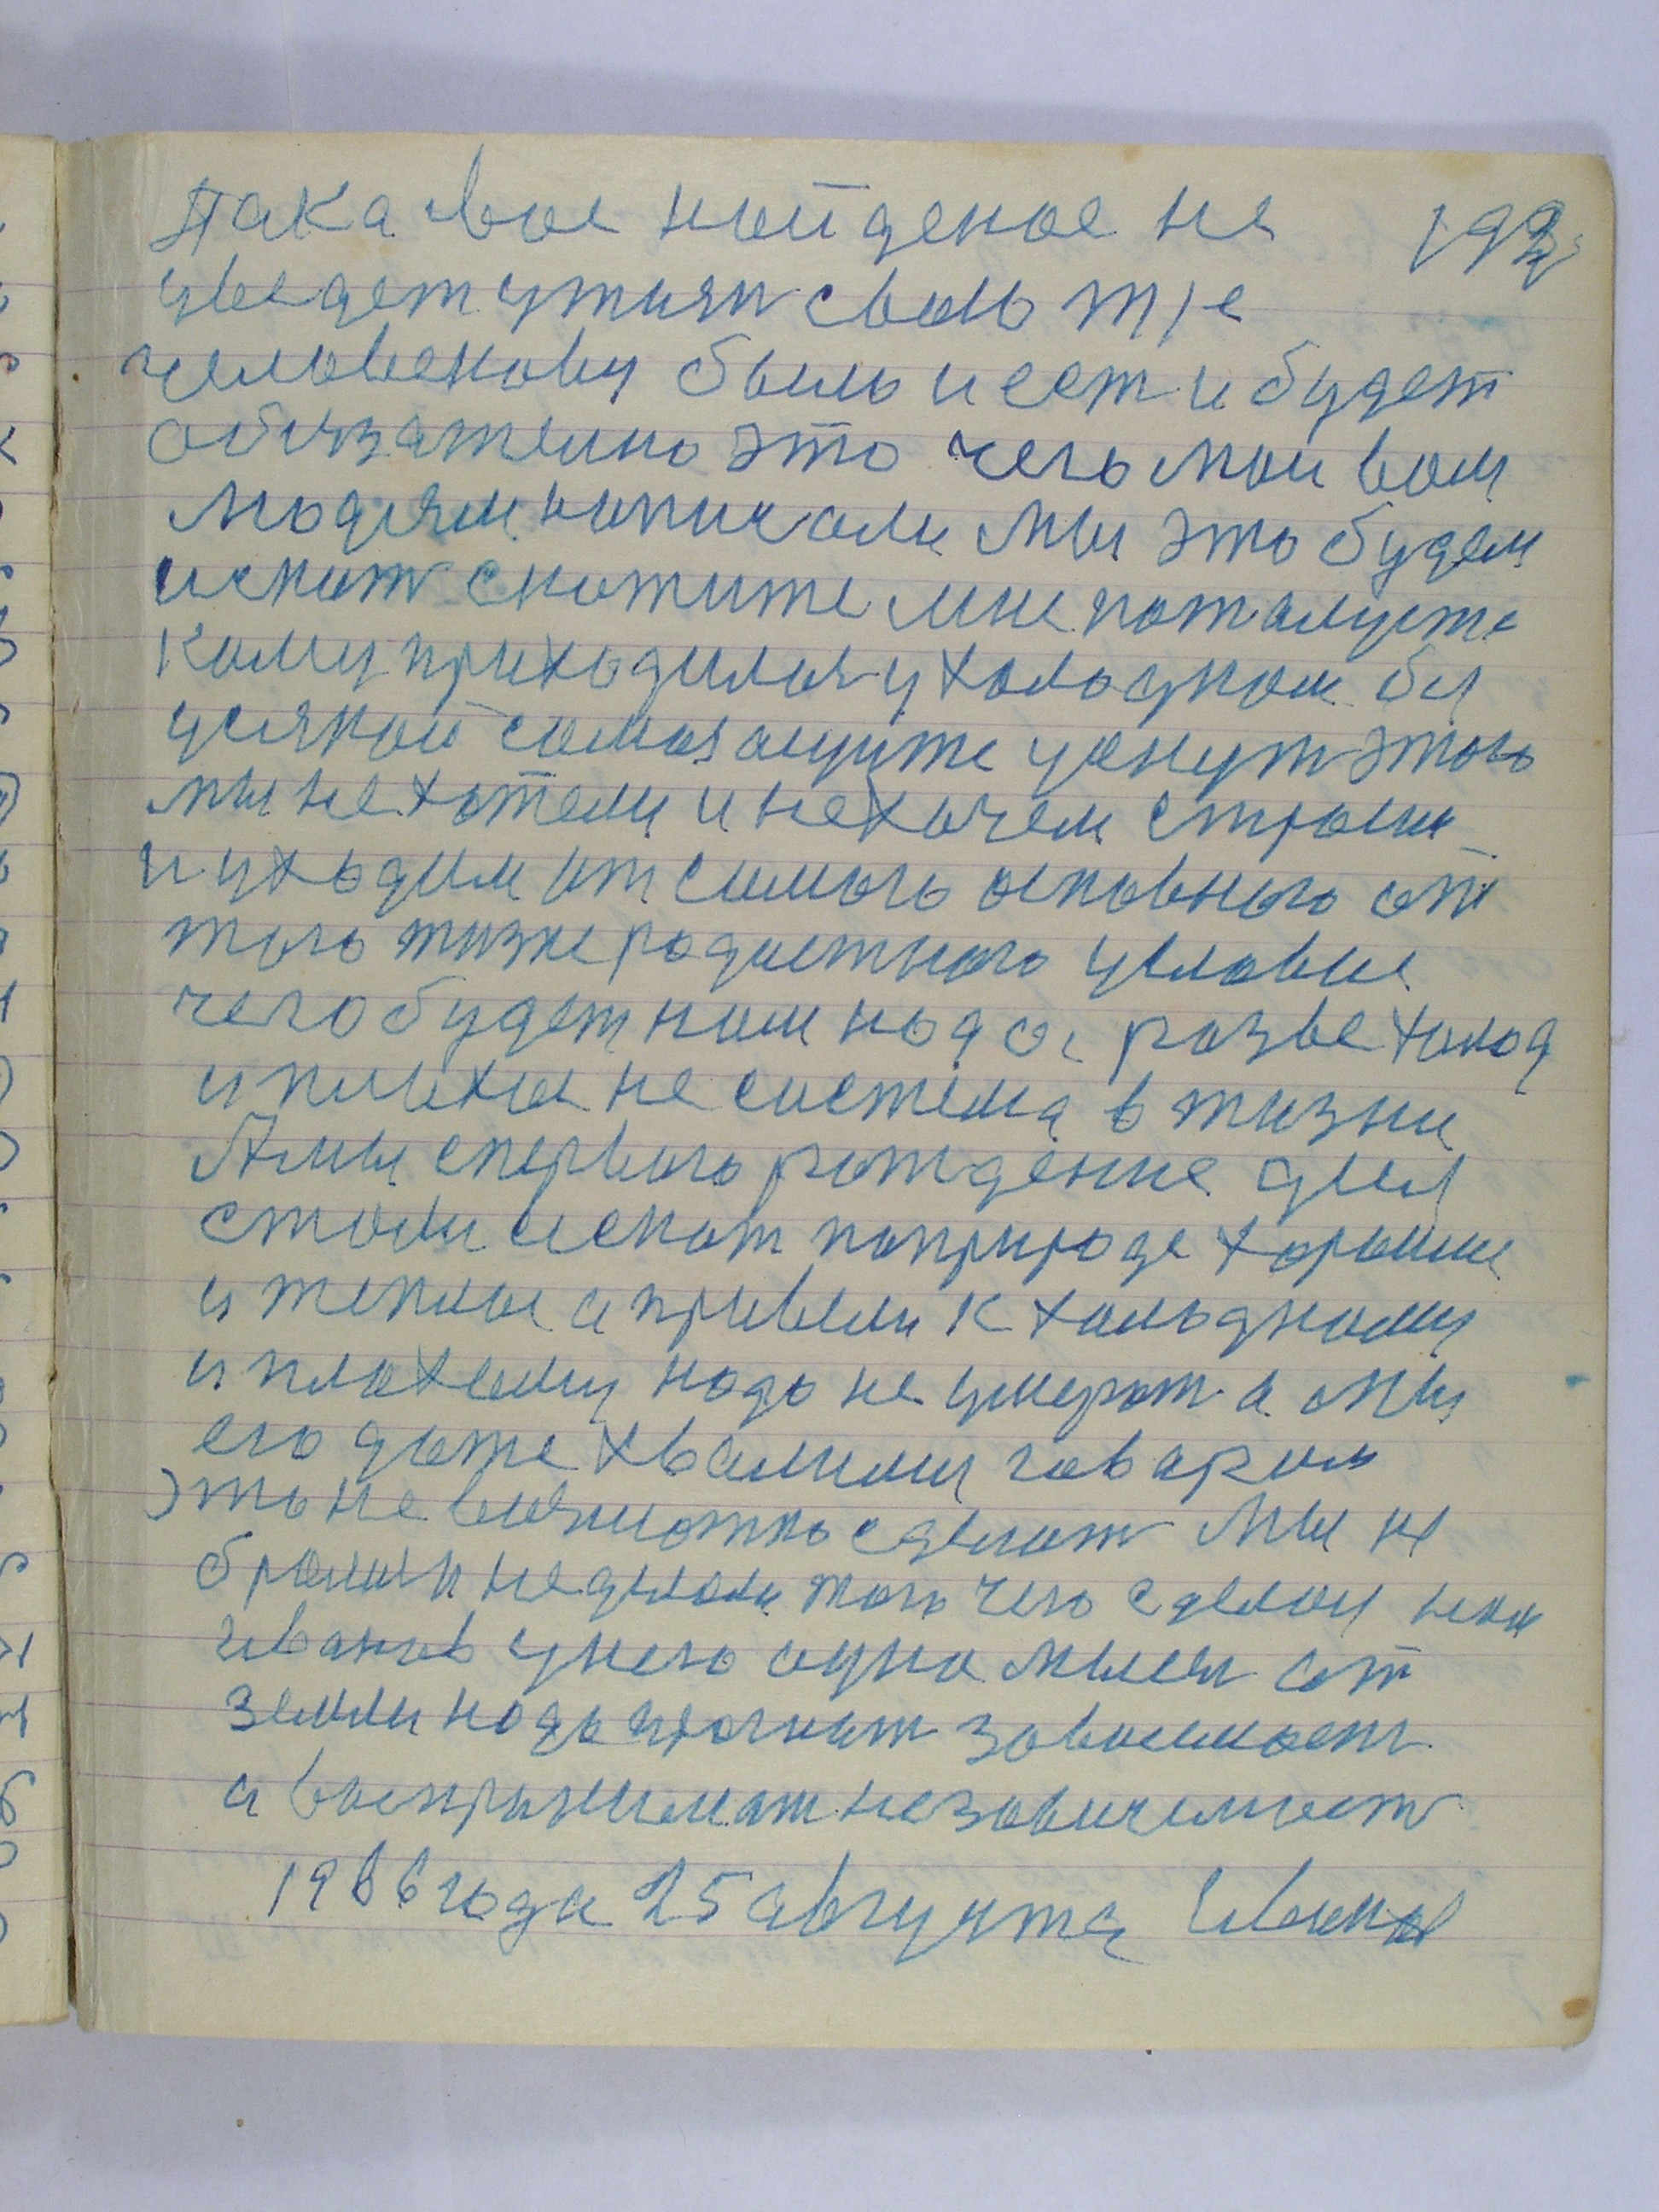 Такавое нойденое не 192
уведет утияп свою тяе
человековы было и ест и будет
обязателно это чего мои вам
людям написали Мы это будем
искат скотите мне потолуста
Кому приходилося у холодном бя
усякой самозащите уснут этого
мы не хотели и не хочем строим
и уходим от самого основного от
того тизне радостного условие
чего будет нам надо, разве холод
и плохое не система в тизни
А мы с первого ротдение дня
стали искат поприроде хорошие
и теплое а привели к холодному
и плохому надо не умерат а мы
его доте хвалимы говарим
это не возмотно сделат Мы не
брались не делали того чего сделал
иванов у него одна мысля от
земли надо изогнат зависимост
а воспринимат независимост
1966 года 25 августа Иванов